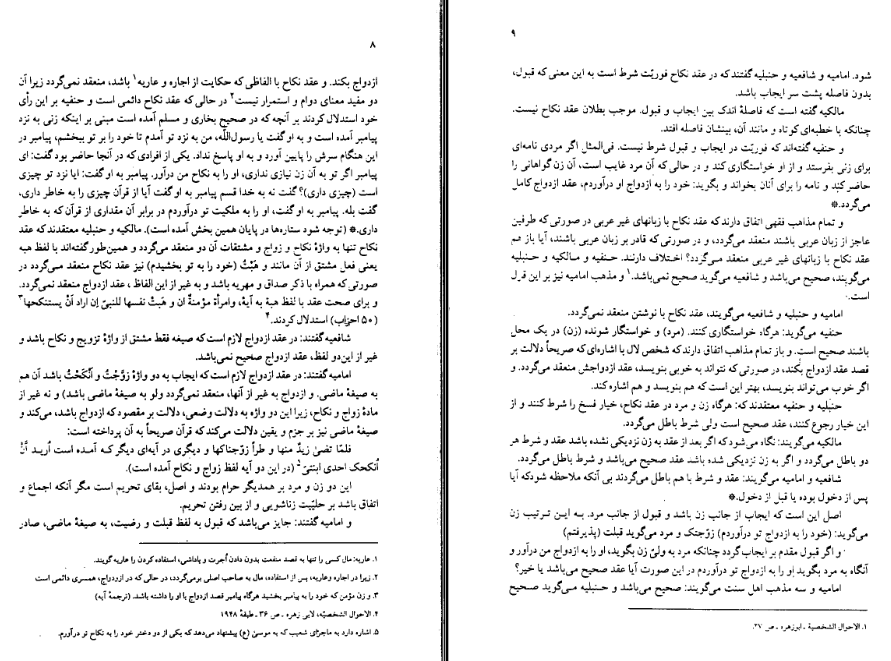 ۸
ازدواج بکند. و عقد نکاح با الفاظی که حکایت از اجاره و عاریه۱ باشد، منعقد نمی‌گردد زیرا آن
دو مفید معنای دوام و استمرار نیست۲ در حالی که عقد نکاح دائمی است و حنفیه بر این رأی
خود استدلال کردند بر آنچه که در صحیح بخاری و مسلم آمده است مبنی بر اینکه زنی به نزد
پیامبر آمده است و به او گفت یا رسول‌اللّه، من به نزد تو آمدم تا خود را بر تو ببخشم، پیامبر در
این هنگام سرش را پایین آورد و به او پاسخ نداد. یکی از افرادی که در آنجا حاضر بود گفت: ای
پیامبر اگر تو به آن زن نیازی نداری، او را به نکاح من درآور. پیامبر به او گفت: ایا نزد تو چیزی
است (چیزی داری)؟ گفت نه به خدا قسم پیامبر به او گفت آیا از قرآن چیزی را به خاطر داری،
گفت بله. پیامبر به او گفت، او را به ملکیت تو درآوردم در برابر آن مقداری از قرآن که به خاطر
داری.* (توجه شود ستاره‌ها در پایان همین بخش آمده است). مالکیه و حنبلیه معتقدند که عقد
نکاح تنها به واژهٔ نکاح و زواج و مشتقات آن دو منعقد می‌گردد و همین‌طور گفته‌اند با لفظ هبه
یعنی فعل مشتق از آن مانند و هَبْتُ (خود را به تو بخشیدم) نیز عقد نکاح منعقد می‌گردد در
صورتی که همراه با ذکر صداق و مهریه باشد و به غیر از این الفاظ، عقد ازدواج منعقد نمی‌گردد.
و برای صحت عقد با لفظ هبة به آیهٔ، وامرأة مؤمنةً ان و هَبتْ نفسها للنبیّ اِن اراد اَنْ یستنکحها۳
(۵۰ احزاب) استدلال کردند.۴
شافعیه گفتند: در عقد ازدواج لازم است که صیغه فقط مشتق از واژهٔ تزویج و نکاح باشد و
غیر از این‌دو لفظ، عقد ازدواج صحیح نمی‌باشد.
امامیه گفتند: در عقد ازدواج لازم است که ایجاب به دو واژهٔ زوّجْتُ و اَنْکَحْتُ باشد آن هم
به صیغهٔ ماضی. و ازدواج به غیر از آنها، منعقد نمی‌گردد ولو به صیغهٔ ماضی باشد) و نه غیر از
مادهٔ زواج و نکاح، زیرا این دو واژه به دلالت وضعی، دلالت بر مقصود که ازدواج باشد، می‌کند و
صیغهٔ ماضی نیز بر جزم و یقین دلالت می‌کند که قرآن صریحاً به آن پرداخته است:
فلمّا تضیٰ زیدٌ منها و طراً زوّجناکها و دیگری در آیه‌ای دیگر که آمده است اُریـد أنَّ
أنکحک احدی ابنتیّ۵ (در این دو آیه لفظ زواج و نکاح آمده است).
این دو زن و مرد بر همدیگر حرام بودند و اصل، بقای تحریم است مگر آنکه اجماع و
اتفاق باشد بر حلیّیت زناشویی و از بین رفتن تحریم.
و امامیه گفتند: جایز می‌باشد که قبول به لفظ قبلت و رضیت، به صیغهٔ ماضی، صادر
۱. عاریه: مال کسی را تنها به قصد منفعت بدون دادن اُجرت و پاداشی، استفاده کردن را عاریه گویند.
۲. زیرا در اجاره وعاریه، پس از استفاده، مال به صاحب اصلی برمی‌گردد، در حالی که در ازدواج، همسری دائمی است
۳. و زن مؤمن که خود را به پیامبر بخشید هرگاه پیامبر قصد ازدواج با او را داشته باشد. (ترجمهٔ آیه)
۴. الاحوال الشخصیّه، لابی زهره ـ ص ۳۶ ـ طبقهٔ ۱۹۴۸
۵. اشاره دارد به ماجرای شعیب که به موسیٰ (ع) پیشنهاد می‌دهد که یکی از دو دختر خود را به نکاح تو درآورم.
۹
شود. امامیه و شافعیه و حنبلیه گفتند که در عقد نکاح فوریّت شرط است به این معنی که قبول،
بدون فاصله پشت سر ایجاب باشد.
مالکیه گفته است که فاصلهٔ اندک بین ایجاب و قبول. موجب بطلان عقد نکاح نیست.
چنانکه با خطبه‌ای کوتاه و مانند آن، بینشان فاصله افتد.
و حنفیه گفته‌اند که فوریّت در ایجاب و قبول شرط نیست. فی‌المثل اگر مردی نامه‌ای
برای زنی بفرستد و از او خواستگاری کند و در حالی که آن مرد غایب است، آن زن گواهانی را
حاضر کند و نامه را برای آنان بخواند و بگوید: خود را به ازدواج او درآوردم، عقد ازدواج کامل
می‌گردد.*
و تمام مذاهب فقهی اتفاق دارند که عقد نکاح با زبانهای غیر عربی در صورتی که طرفین
عاجز از زبان عربی باشند منعقد می‌گردد، و در صورتی که قادر بر زبان عربی باشند، آیا باز هم
عقد نکاح با زبانهای غیر عربی منعقد می‌گردد؟ اختـلاف دارنـد. حنـفیه و مـالکیه و حـنبلیه
می‌گویند، صحیح می‌باشد و شافعیه می‌گوید صحیح نمی‌باشد.۱ و مذهب امامیه نیز بر این قول
است.
امامیه و حنبلیه و شافعیه می‌گویند، عقد نکاح با نوشتن منعقد نمی‌گردد.
حنفیه می‌گوید: هرگاه خواستگاری کنند. (مرد) و خواستگار شونده (زن) در یک محل
باشند صحیح است. و باز تمام مذاهب اتفاق دارند که شخص لال با اشاره‌ای که صریحاً دلالت بر
قصد عقد ازدواج بکند، در صورتی که نتواند به خوبی بنویسد، عقد ازدواجش منعقد می‌گردد. و
اگر خوب می‌تواند بنویسد، بهتر این است که هم بنویسد و هم اشاره کند.
حنبلیه و حنفیه معتقدند که: هرگاه زن و مرد در عقد نکاح، خیار فسخ را شرط کنند و از
این خیار رجوع کنند، عقد صحیح است ولی شرط باطل می‌گردد.
مالکیه می‌گویند: نگاه می‌شود که اگر بعد از عقد به زن نزدیکی نشده باشد عقد و شرط هر
دو باطل می‌گردد و اگر به زن نزدیکی شده باشد عقد صحیح می‌باشد و شرط باطل می‌گردد.
شافعیه و امامیه می‌گویند: عقد و شرط با هم باطل می‌گردند بی آنکه ملاحظه شود که آیا
پس از دخول بوده یا قبل از دخول.*
اصل این است که ایجاب از جانب زن باشد و قبول از جانب مرد. بـه ایـن تـرتیب زن
می‌گوید: (خود را به ازدواج تو درآوردم) زوّجتک و مرد می‌گوید قبلت (پذیرفتم)
و اگر قبول مقدم بر ایجاب گردد چنانکه مرد به ولیّ زن بگوید، او را به ازدواج من درآور و
آنگاه به مرد بگوید او را به ازدواج تو درآوردم در این صورت آیا عقد صحیح می‌باشد یا خیر؟
امامیه و سه مذهب اهل سنت می‌گویند: صحیح می‌باشد و حنبلیه می‌گوید صحیح
۱. الاحوال الشخصیة ـ ابوزهره ـ ص ۲۷.